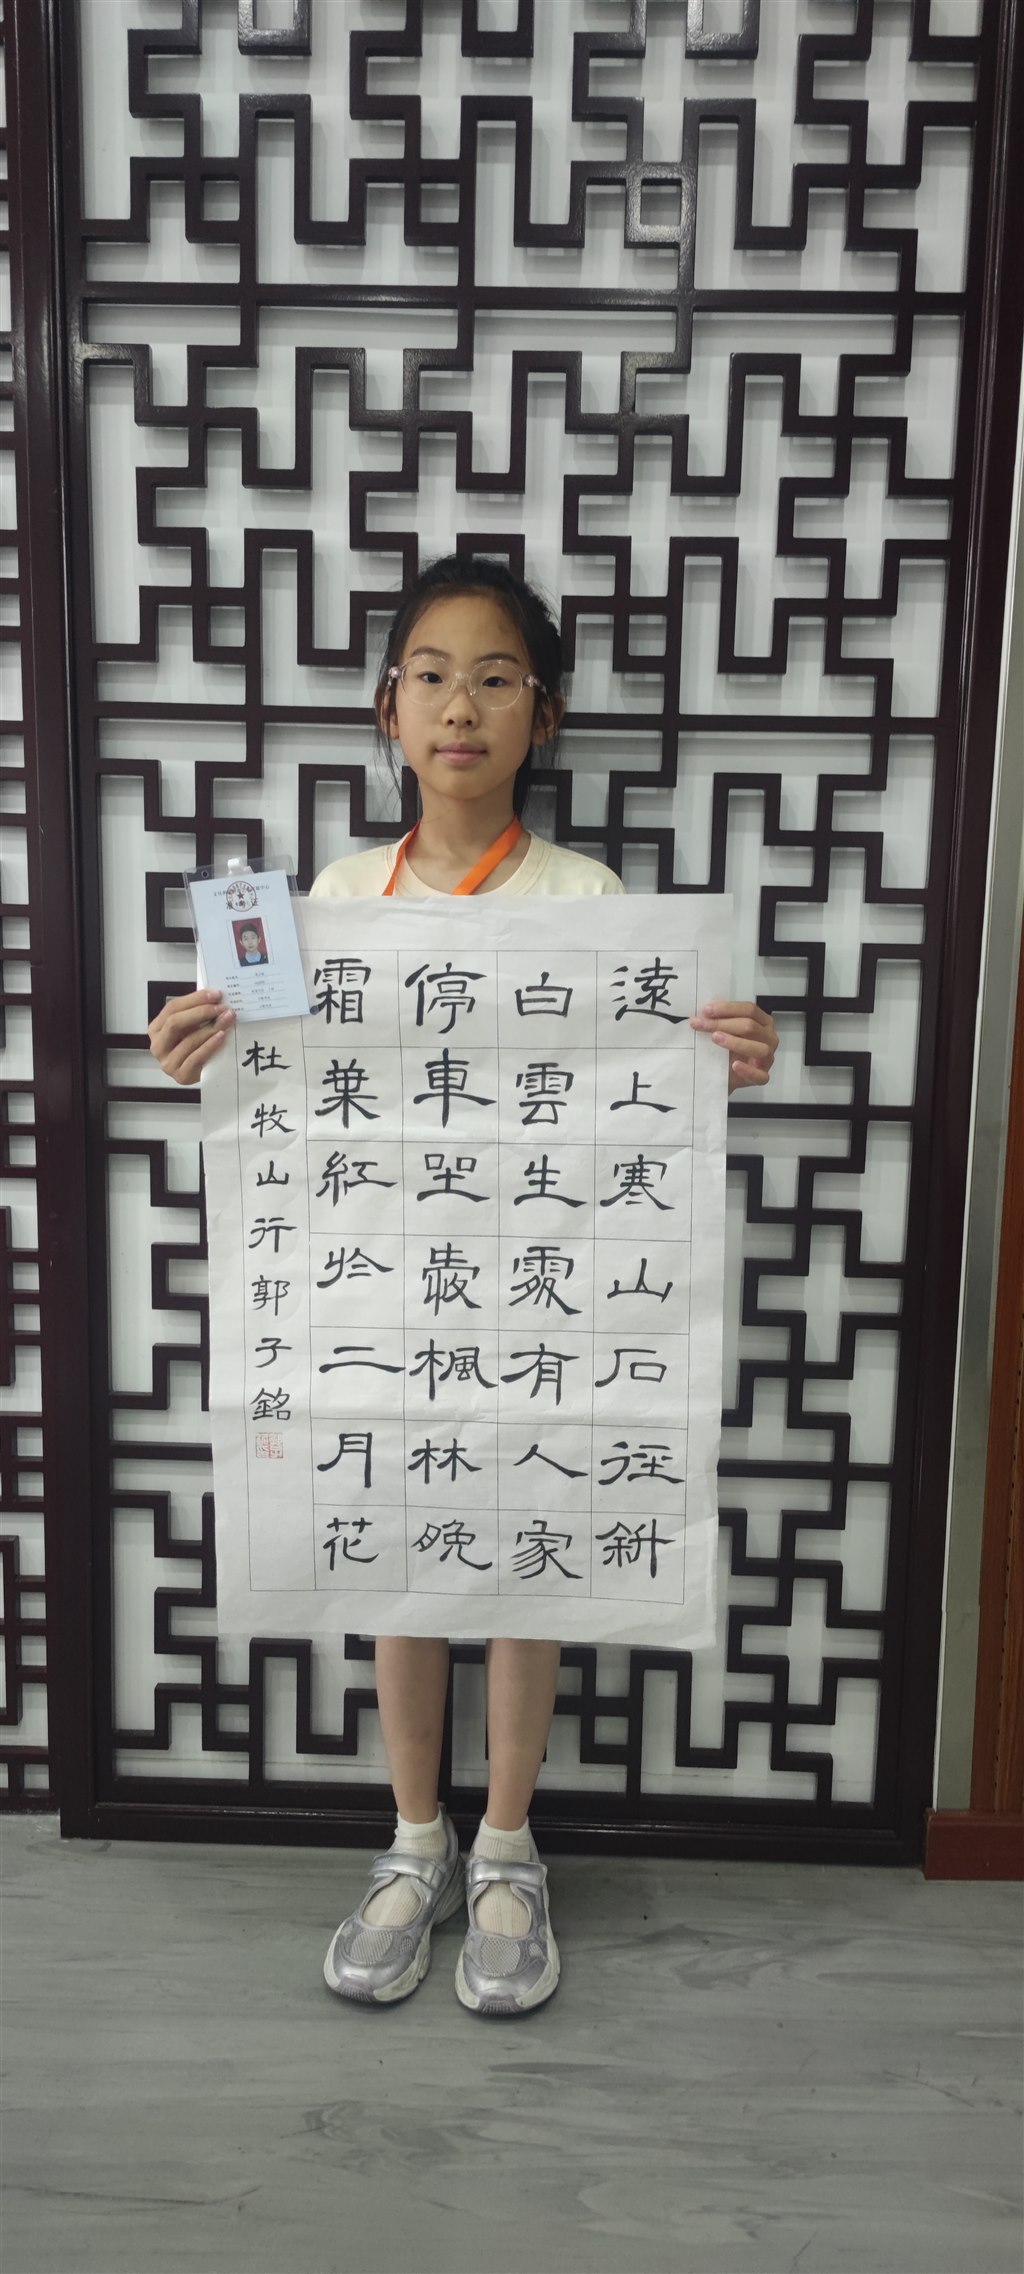 遠上寒山石徑斜
白雲生處有人家
停車坐愛楓林晚
霜葉紅於二月花
杜牧山行郭子銘